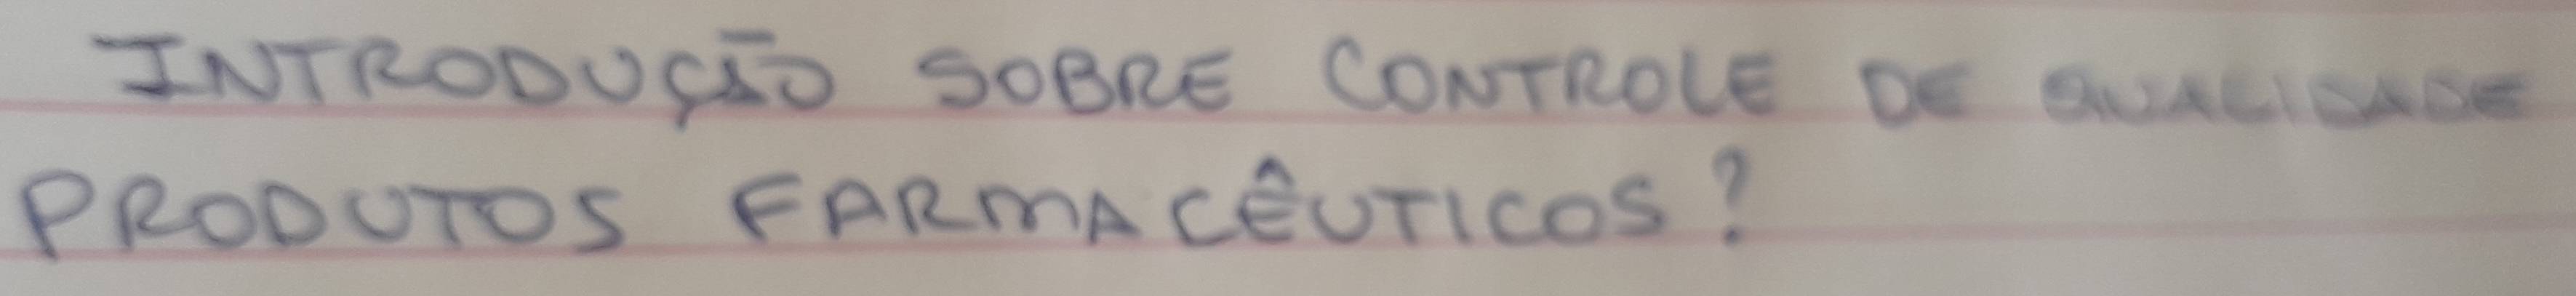 INTRODUÇÃO SOBRE CONTROLE DE QUALIDADE
PRODUTOS FARMACÊUTICOS?